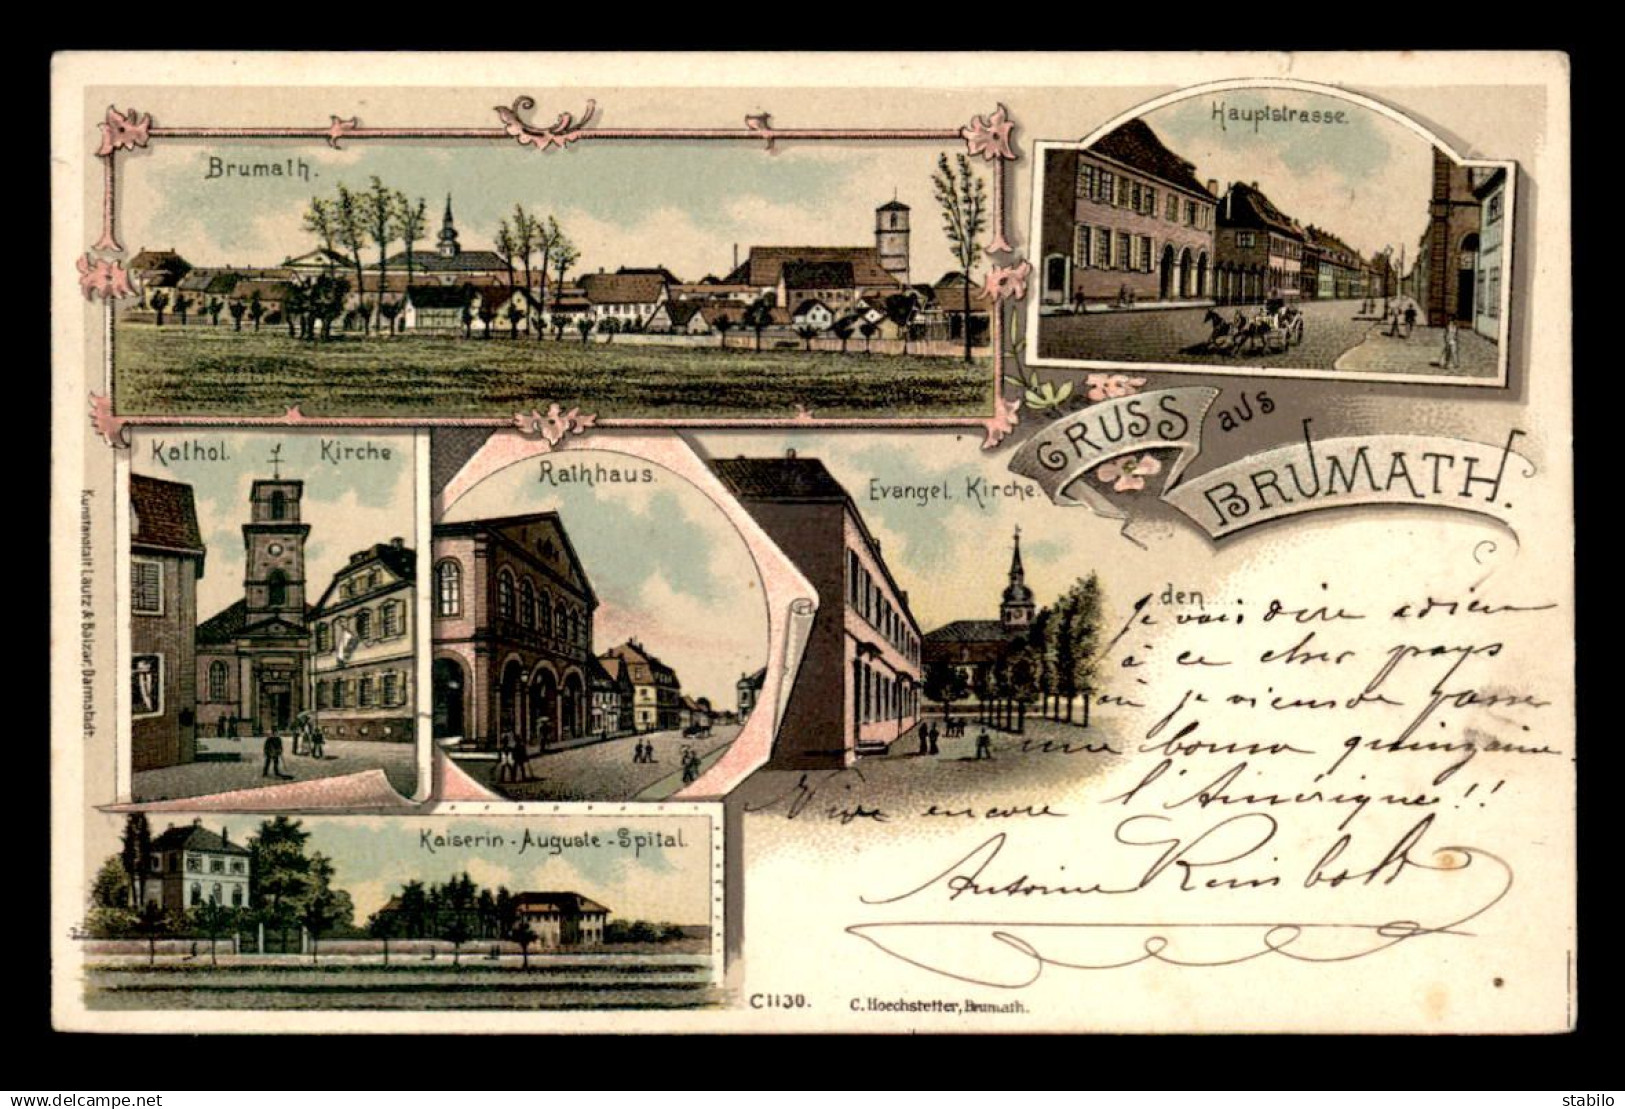 Brumath.
Hauptstrasse.
GRUSS aus
BRUMATH.
Kathol. Kirche
Rathhaus.
Evangel. Kirche.
Kunstanstalt Lautz & Balzar, Darmstadt.
den
Je vais dire adieu
à ce cher pays
où je viens de passer
une bonne quinzaine
Vive encore l'Amérique!!
Antoine
Kaiserin-Auguste-Spital.
C1130. C. Hoechstetter, Brumath.
delcampe.net
stabilo